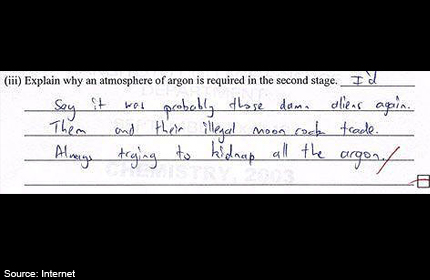 (iii) Explain why an atmosphere of argon is required in the second stage. I'd
Say it was probably those damn aliens again.
Them and their illegal moon rock trade.
Always trying to kidnap all the argon.
CHEMISTRY, 2003
Source: Internet